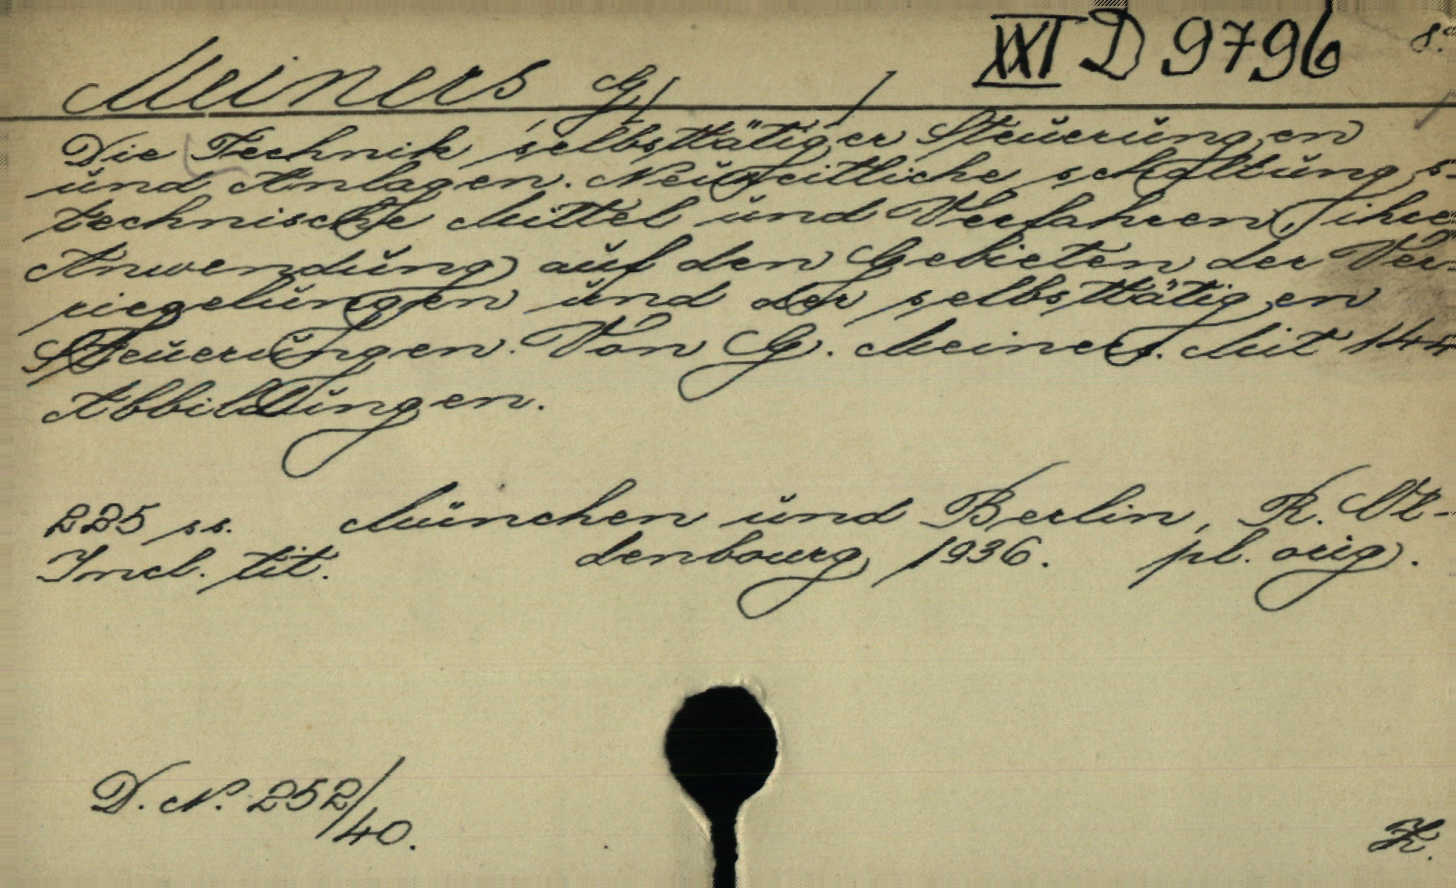 XXI D 9796 8°
Meiners, G/ /
Die Technik selbsttätiger Steuerungen
und Anlagen. Neuzeitliche schaltungs-
technische Mittel und Verfahren, ihre
Anwendung auf den Gebieten der Ver-
riegelungen und der selbsttätigen
Steuerungen. Von G. Meiners. Mit 144
Abbildungen.
225 ss. München und Berlin, R. Ol-
Incl. tit. denbourg, 1936. pl. orig.
D. N. 252/40.